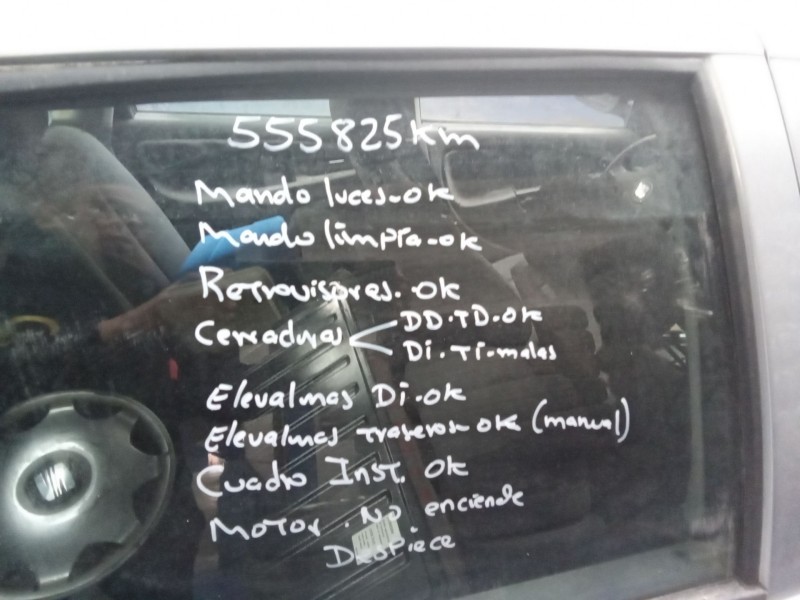 555825km
Mando luces-ok
Mando limpia-ok
Retrovisores.ok
Cerraduras
DD.TD.ok
Di.Ti-malas
Elevalunas Di.ok
Elevalunas traseros ok (manual)
Cuadro Inst. ok
Motor. No enciende
Despiece